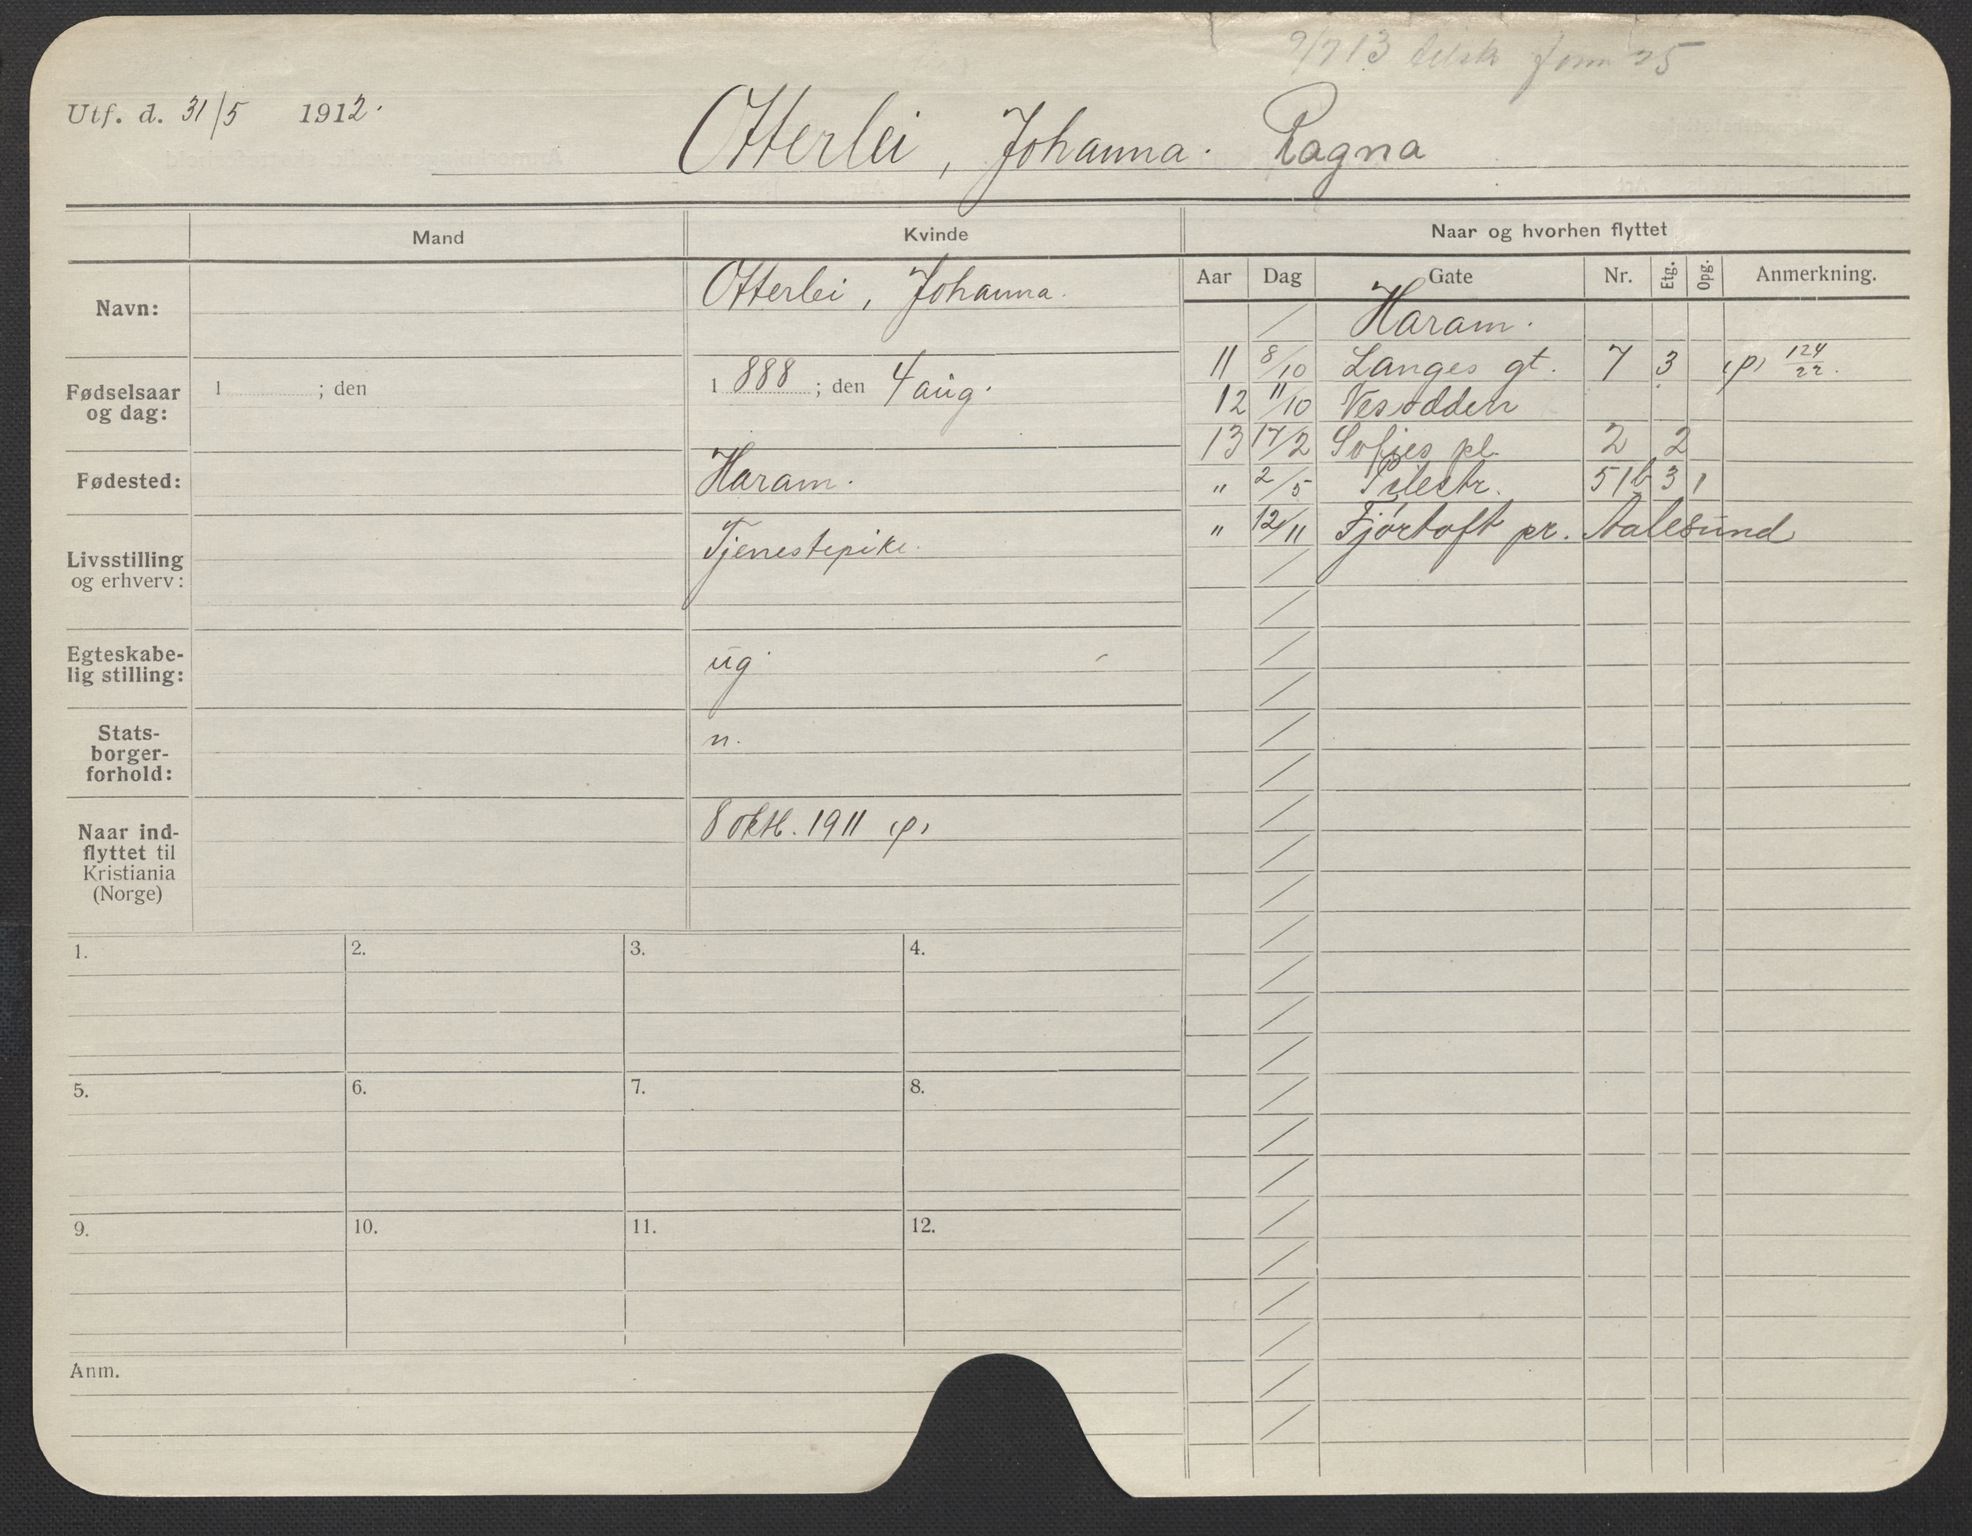 9/7 13
Utf. d. 31/5 1912.
Otterlei, Johanna. Ragna
Mand Kvinde Naar og hvorhen flyttet
Aar Dag Gate Nr. Etg. Opg. Anmerkning.
Navn: Otterlei, Johanna.
Haram.
11 8/10 Langes gt. 7 3 (p) 124/22.
Fødselsaar og dag: 1 ; den 1 888 ; den 4 aug.
12 11/10 Vesødden
13 17/2 Sofies pl. 2 2
Fødested: Haram.
" 2/5 Pilestr. 51b 3 1
" 12/11 Fjörtoft pr. Aalesund
Livsstilling og erhverv: Tjenestepike.
Egteskabe-
lig stilling: ug
Stats-
borger-
forhold: n.
Naar ind-
flyttet til
Kristiania
(Norge) 8 okt. 1911 (p)
1. 2. 3. 4.
5. 6. 7. 8.
9. 10. 11. 12.
Anm.